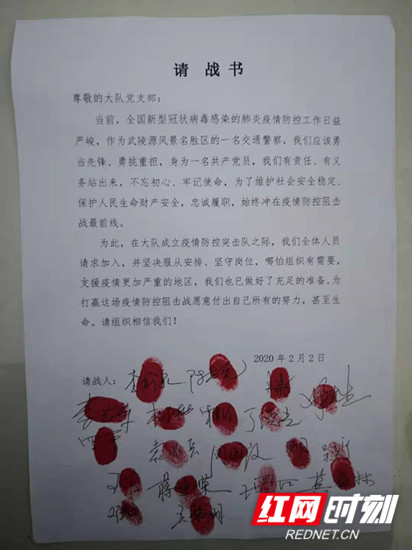 请战书
尊敬的大队党支部：
当前，全国新型冠状病毒感染的肺炎疫情防控工作日益
严峻，作为武陵源风景名胜区的一名交通警察，我们应该勇
当先锋、勇挑重担，身为一名共产党员，我们有责任、有义
务站出来，不忘初心、牢记使命，为了维护社会安全稳定、
保护人民生命财产安全，忠诚履职，始终冲在疫情防控阻击
战最前线。
为此，在大队成立疫情防控突击队之际，我们全体人员
请求加入，并坚决服从安排、坚守岗位，哪怕组织有需要，
支援疫情更加严重的地区，我们也已做好了充足的准备。为
打赢这场疫情防控阻击战愿意付出自己所有的努力，甚至生
命。请组织相信我们！
2020年2月2日
请战人：
红网时刻
REDNET.CN